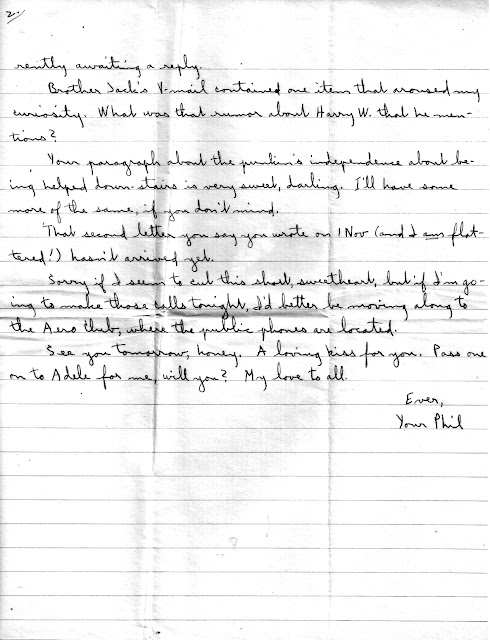 2.
rently awaiting a reply.
Brother Jack's V-mail contained one item that aroused my
curiosity. What was that rumor about Harry W. that he men-
tions?
Your paragraph about the punkin's independence about be-
ing helped down-stairs is very sweet, darling. I'll have some
more of the same, if you don't mind.
That second letter you say you wrote on 1 Nov (and I am flat-
tered!) hasn't arrived yet.
Sorry if I seem to cut this short, sweetheart, but if I'm go-
ing to make those calls tonight, I'd better be moving along to
the Aero Club, where the public phones are located.
See you tomorrow, honey. A loving kiss for you. Pass one
on to Adele for me, will you? My love to all.
Ever,
Your Phil